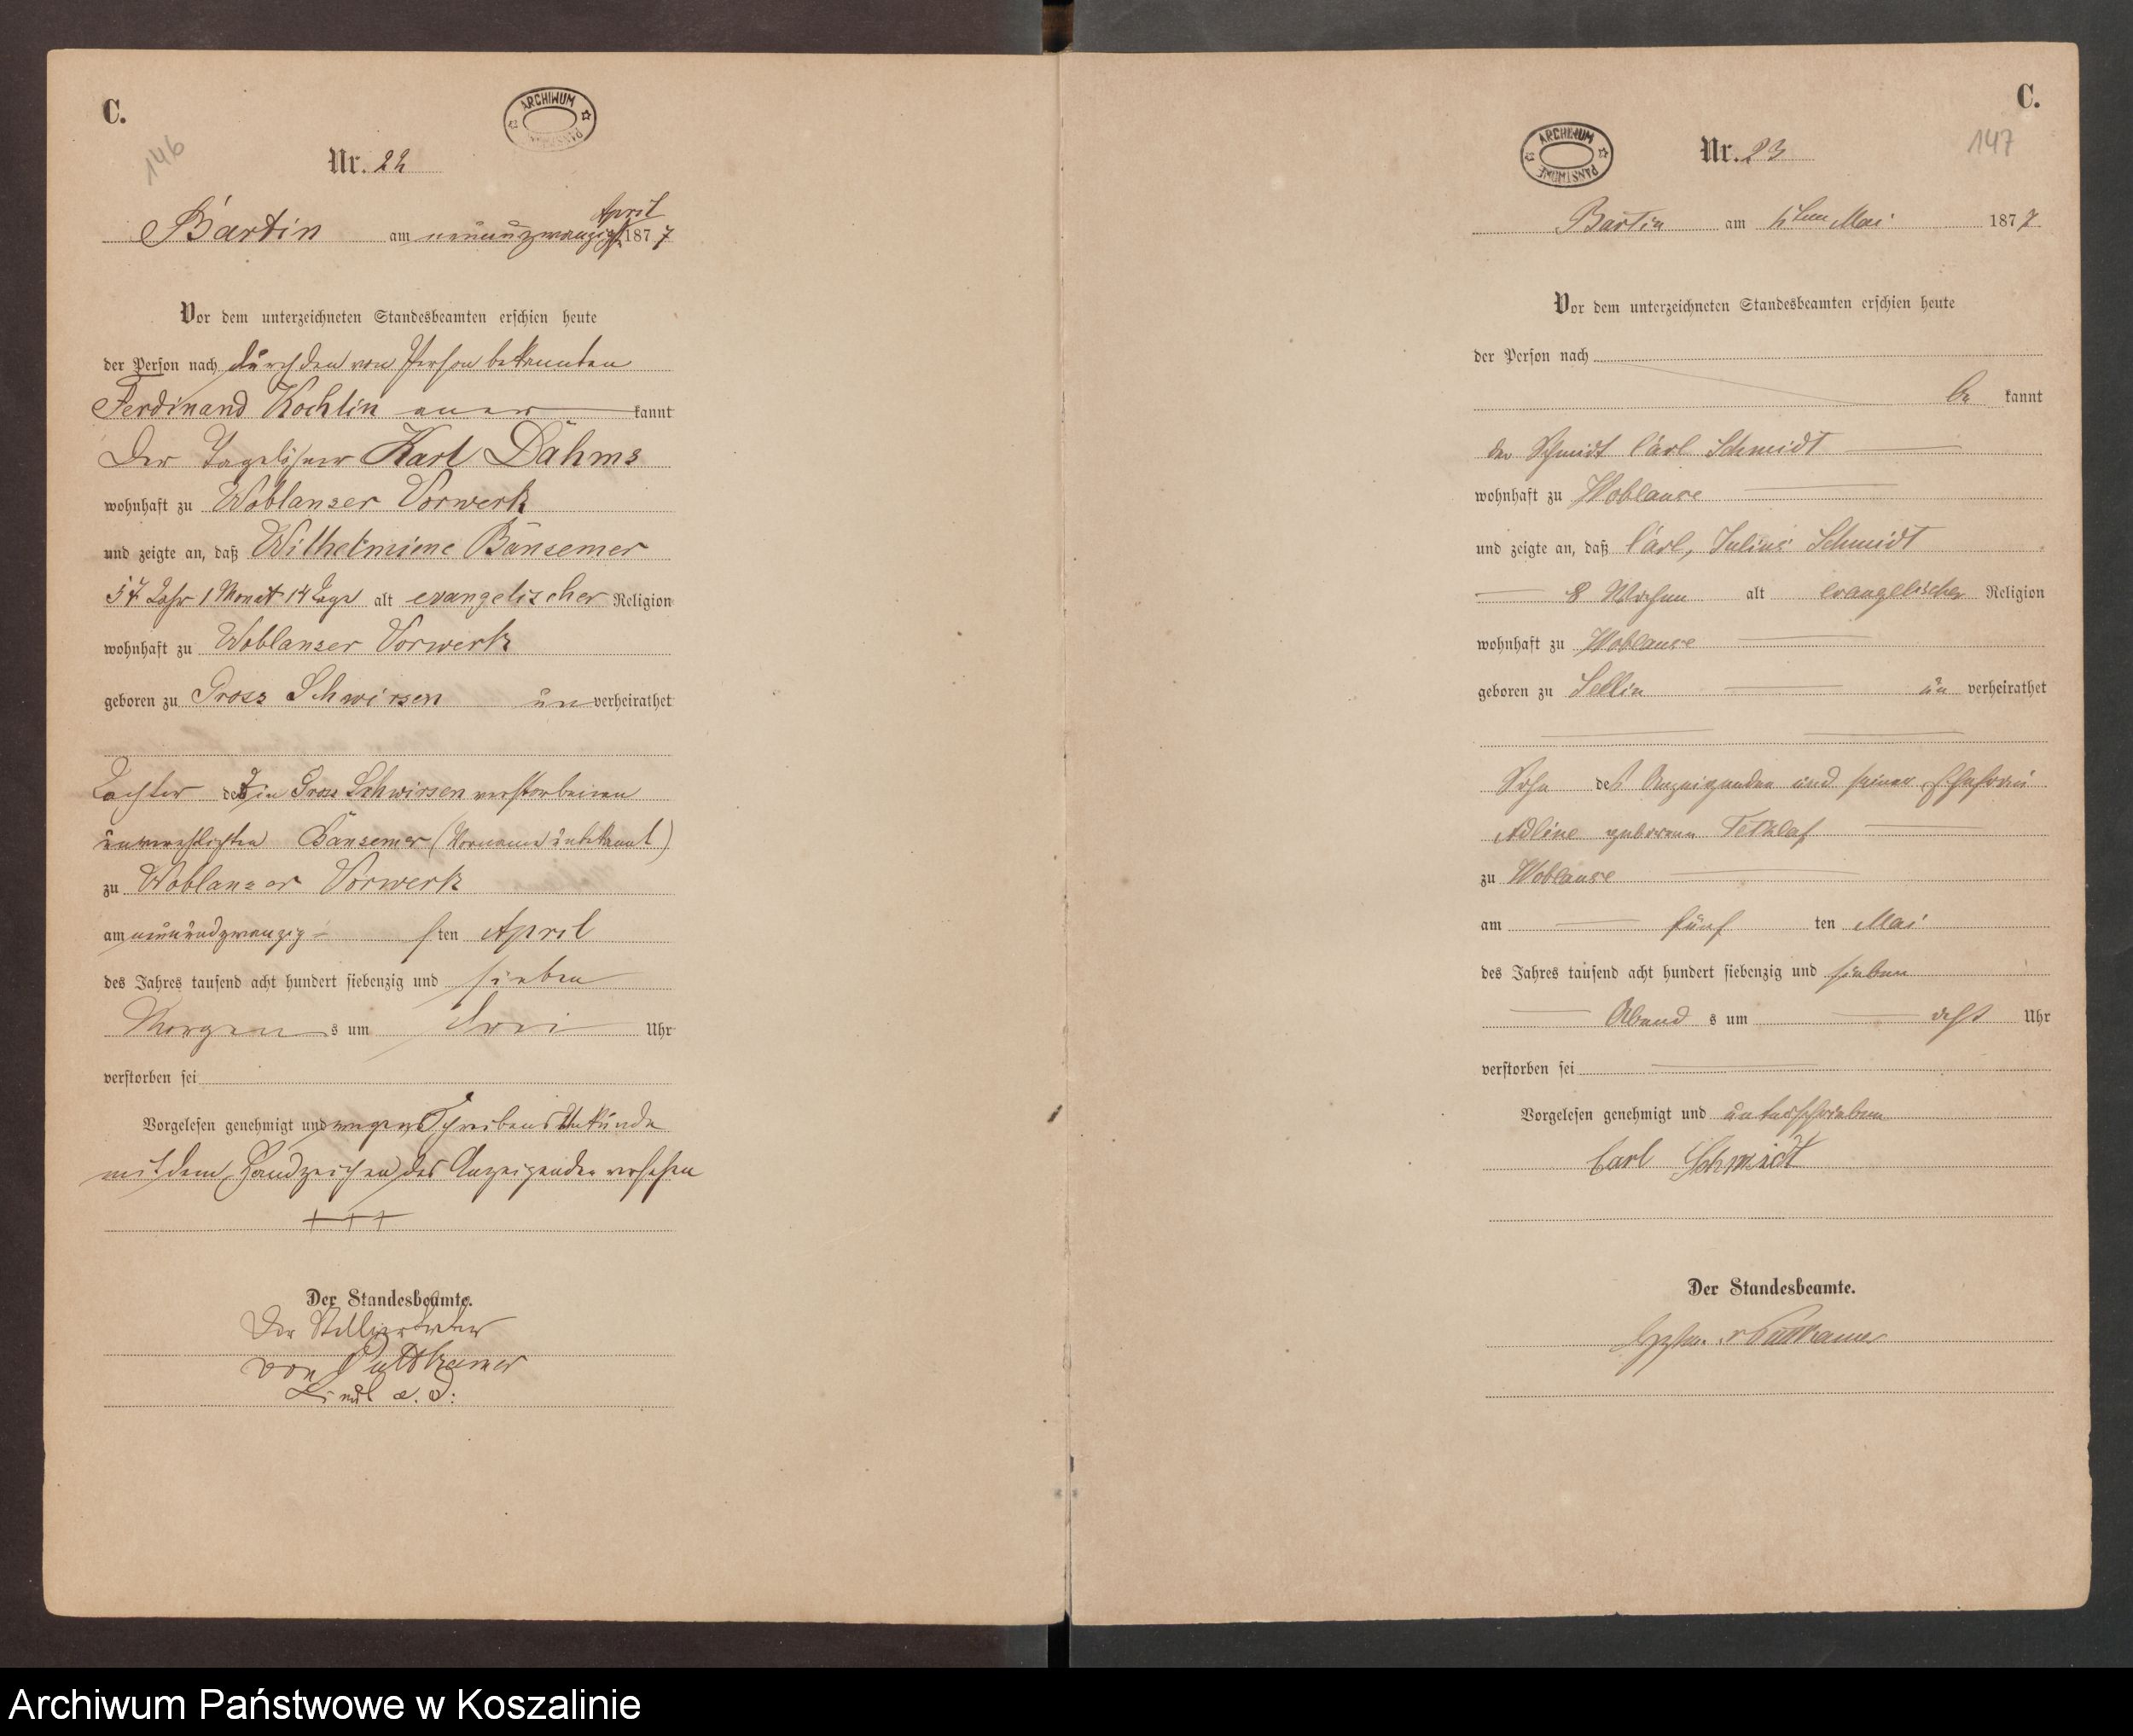 C.
146
ARCHIWUM
Nr. 22
Bartin am neunundzwanzigst April 1877
Vor dem unterzeichneten Standesbeamten erschien heute
der Person nach durch den von Person bekannten
Ferdinand Kochlin aner kannt
Der Tagelöhner Karl Dahms
wohnhaft zu Woblanser Vorwerk
und zeigte an, daß Wilhelmine Bansemer
57 Jahr 1 Monat 14 Tage alt evangelischer Religion
wohnhaft zu Woblanser Vorwerk
geboren zu Gross Schwirsen un verheirathet
Tochter der in Gross Schwirsen verstorbenen
unverehlichten Bansemer (Vorname unbekannt)
zu Woblanser Vorwerk
am neunundzwanzig sten April
des Jahres tausend acht hundert siebenzig und sieben
Morgen s um drei Uhr
verstorben sei
Vorgelesen genehmigt und wegen Schreibens Unkunde
mit dem Handzeichen des Anzeigenden versehen
+++
Der Standesbeamte.
Der Stellvertreter
von Puttkamer
a. D.
C.
147
ARCHIWUM PAŃSTWOWE
Nr. 23
Bartin am Mai 1877
Vor dem unterzeichneten Standesbeamten erschien heute
der Person nach
be kannt
der Schmidt Carl Schmidt
wohnhaft zu Woblanse
und zeigte an, daß Carl, Julius Schmidt
8 Wochen alt evangelischer Religion
wohnhaft zu Woblanse
geboren zu Sellin un verheirathet
Sohn des Anzeigenden und seiner Ehefrau
Adline geborenen Tetzlaf
zu Woblanse
am fünf ten Mai
des Jahres tausend acht hundert siebenzig und sieben
Abend s um acht Uhr
verstorben sei
Vorgelesen genehmigt und unterschrieben
Carl Schmidt
Der Standesbeamte.
v Puttkamer
Archiwum Państwowe w Koszalinie